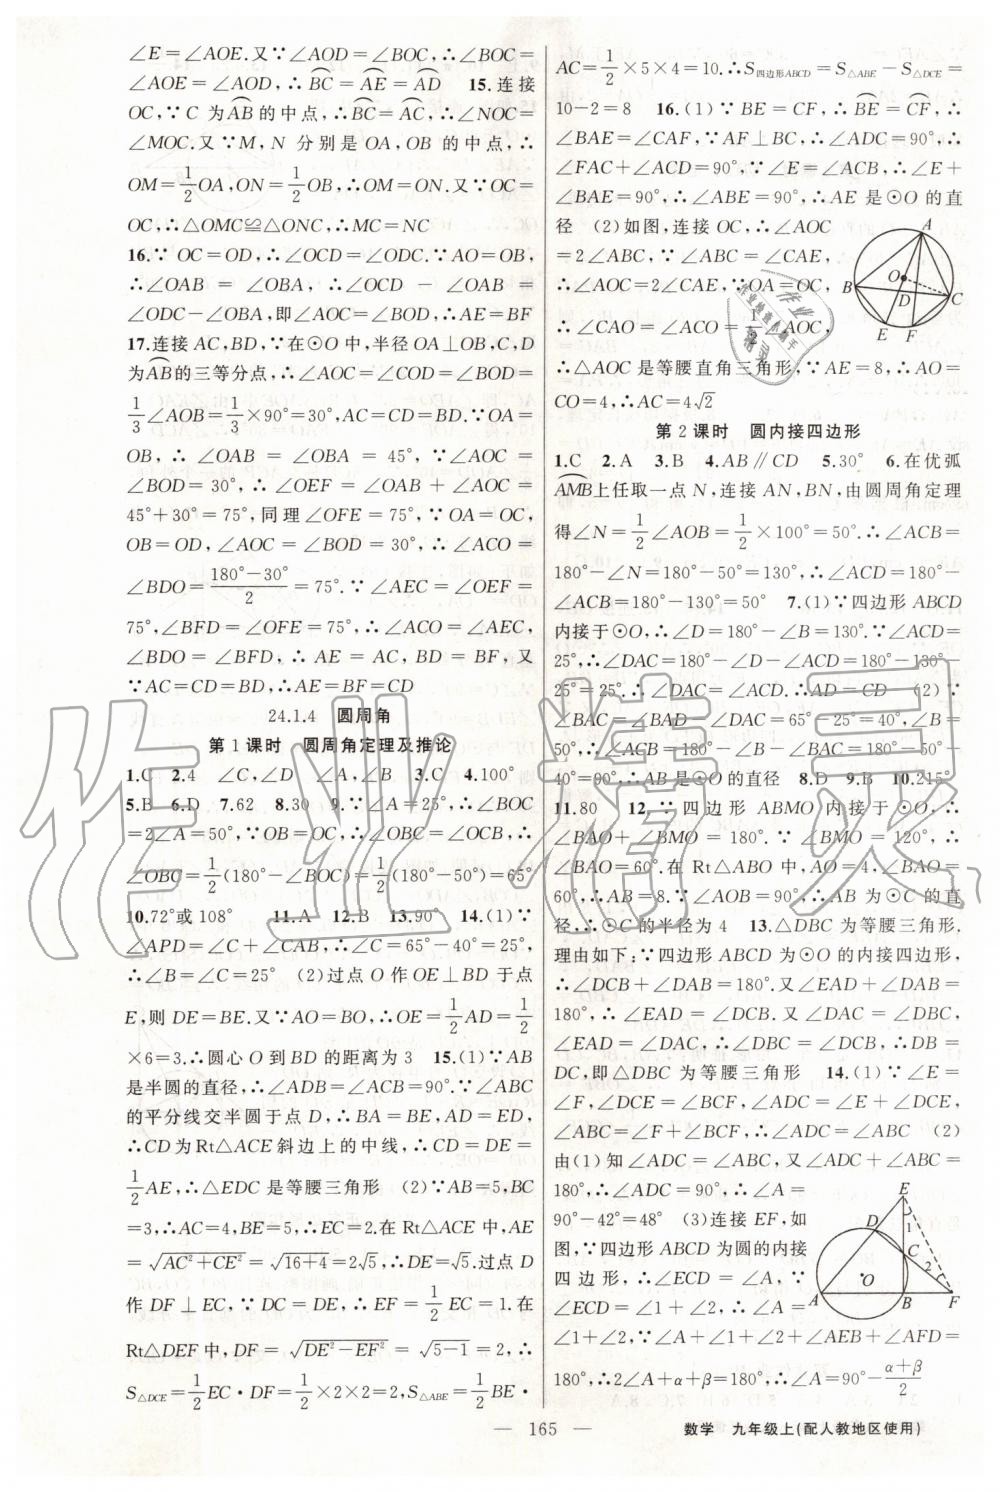 ∠E=∠AOE.又∵∠AOD=∠BOC,∴∠BOC=
∠AOE=∠AOD,∴BC=AE=AD 15.连接
OC,∵C为AB的中点,∴BC=AC,∴∠NOC=
∠MOC.又∵M,N分别是OA,OB的中点,∴
OM=1/2OA,ON=1/2OB,∴OM=ON.又∵OC=
OC,∴△OMC≌△ONC,∴MC=NC
16.∵OC=OD,∴∠OCD=∠ODC.∵AO=OB,
∴∠OAB=∠OBA,∴∠OCD-∠OAB=
∠ODC-∠OBA,即∠AOC=∠BOD,∴AE=BF
17.连接AC,BD,∵在⊙O中,半径OA⊥OB,C,D
为AB的三等分点,∴∠AOC=∠COD=∠BOD=
1/3∠AOB=1/3×90°=30°,AC=CD=BD.∵OA=
OB,∴∠OAB=∠OBA=45°,∵∠AOC=
∠BOD=30°,∴∠OEF=∠OAB+∠AOC=
45°+30°=75°,同理∠OFE=75°,∵OA=OC,
OB=OD,∠AOC=∠BOD=30°,∴∠ACO=
∠BDO=(180°-30°)/2=75°.∵∠AEC=∠OEF=
75°,∠BFD=∠OFE=75°,∴∠ACO=∠AEC,
∠BDO=∠BFD,∴AE=AC,BD=BF,又
∵AC=CD=BD,∴AE=BF=CD
24.1.4 圆周角
第1课时 圆周角定理及推论
1.C 2.4 ∠C,∠D ∠A,∠B 3.C 4.100°
5.B 6.D 7.62 8.30 9.∵∠A=25°,∴∠BOC
=2∠A=50°,∵OB=OC,∴∠OBC=∠OCB,∴
∠OBC=1/2(180°-∠BOC)=1/2(180°-50°)=65°
10.72°或108° 11.A 12.B 13.90° 14.(1)∵
∠APD=∠C+∠CAB,∴∠C=65°-40°=25°,
∴∠B=∠C=25° (2)过点O作OE⊥BD于点
E,则DE=BE.又∵AO=BO,∴OE=1/2AD=1/2
×6=3.∴圆心O到BD的距离为3 15.(1)∵AB
是半圆的直径,∴∠ADB=∠ACB=90°.∵∠ABC
的平分线交半圆于点D,∴BA=BE,AD=ED,
∴CD为Rt△ACE斜边上的中线,∴CD=DE=
1/2AE,∴△EDC是等腰三角形 (2)∵AB=5,BC
=3,∴AC=4,BE=5,∴EC=2.在Rt△ACE中,AE
=√(AC²+CE²)=√(16+4)=2√5,∴DE=√5.过点D
作DF⊥EC,∵DC=DE,∴EF=1/2EC=1.在
Rt△DEF中,DF=√(DE²-EF²)=√(5-1)=2,∴
S△DCE=1/2EC·DF=1/2×2×2=2,S△ABE=1/2BE·
AC=1/2×5×4=10.∴S四边形ABCD=S△ABE-S△DCE=
10-2=8 16.(1)∵BE=CF,∴BE=CF,∴
∠BAE=∠CAF,∵AF⊥BC,∴∠ADC=90°,∴
∠FAC+∠ACD=90°,∵∠E=∠ACB,∴∠E+
∠BAE=90°,∴∠ABE=90°,∴AE是⊙O的直
径 (2)如图,连接OC,∴∠AOC
=2∠ABC,∵∠ABC=∠CAE,
∴∠AOC=2∠CAE,∵OA=OC,
∴∠CAO=∠ACO=1/2∠AOC,
∴△AOC是等腰直角三角形,∵AE=8,∴AO=
CO=4,∴AC=4√2
A
B
O
D
C
E
F
第2课时 圆内接四边形
1.C 2.A 3.B 4.AB∥CD 5.30° 6.在优弧
AMB上任取一点N,连接AN,BN,由圆周角定理
得∠N=1/2∠AOB=1/2×100°=50°.∴∠ACB=
180°-∠N=180°-50°=130°,∴∠ACD=180°-
∠ACB=180°-130°=50° 7.(1)∵四边形ABCD
内接于⊙O,∴∠D=180°-∠B=130°.∵∠ACD=
25°,∴∠DAC=180°-∠D-∠ACD=180°-130°-
25°=25°.∴∠DAC=∠ACD.∴AD=CD (2)∵
∠BAC=∠BAD-∠DAC=65°-25°=40°,∠B=
50°,∴∠ACB=180°-∠B-∠BAC=180°-50°-
40°=90°,∴AB是⊙O的直径 8.D 9.B 10.215°
11.80 12.∵四边形ABMO内接于⊙O,∴
∠BAO+∠BMO=180°.∵∠BMO=120°,∴
∠BAO=60°.在Rt△ABO中,AO=4,∠BAO=
60°,∴AB=8.∵∠AOB=90°,∴AB为⊙C的直
径,∴⊙C的半径为4 13.△DBC为等腰三角形.
理由如下:∵四边形ABCD为⊙O的内接四边形,
∴∠DCB+∠DAB=180°.又∠EAD+∠DAB=
180°,∴∠EAD=∠DCB.又∠DAC=∠DBC,
∠EAD=∠DAC,∴∠DBC=∠DCB,∴DB=
DC,即△DBC为等腰三角形 14.(1)∵∠E=
∠F,∠DCE=∠BCF,∠ADC=∠E+∠DCE,
∠ABC=∠F+∠BCF,∴∠ADC=∠ABC (2)
由(1)知∠ADC=∠ABC,又∠ADC+∠ABC=
180°,∴∠ADC=90°,∴∠A=
90°-42°=48° (3)连接EF,如
图,∵四边形ABCD为圆的内接
四边形,∴∠ECD=∠A,∵
∠ECD=∠1+∠2,∴∠A=
∠1+∠2,∵∠A+∠1+∠2+∠AEB+∠AFD=
180°,∴2∠A+α+β=180°,∴∠A=90°-(α+β)/2
E
D
1
C
2
O
A
B
F
— 165 —
数学 九年级上(配人教地区使用)
作业精灵